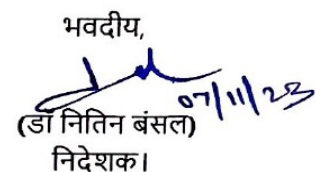 भवदीय,
07/11/23
(डॉ नितिन बंसल)
निदेशक।